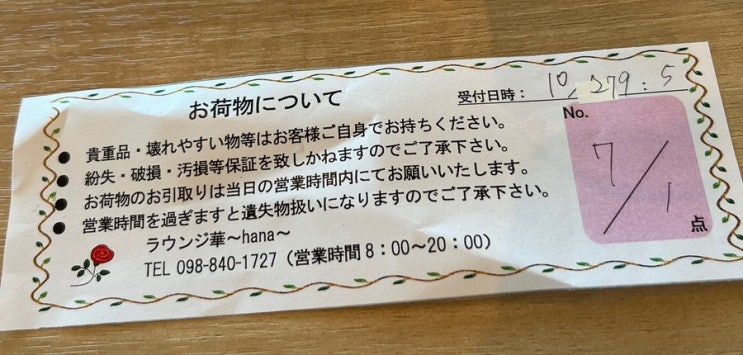 お荷物について
受付日時： 10, 279 : 5
● 貴重品・壊れやすい物等はお客様ご自身でお持ちください。
● 紛失・破損・汚損等保証を致しかねますのでご了承下さい。
● お荷物のお引取りは当日の営業時間内にてお願いいたします。
● 営業時間を過ぎますと遺失物扱いになりますのでご了承下さい。
ラウンジ華～hana～
TEL 098-840-1727（営業時間8：00～20：00）
No.
7/1
点